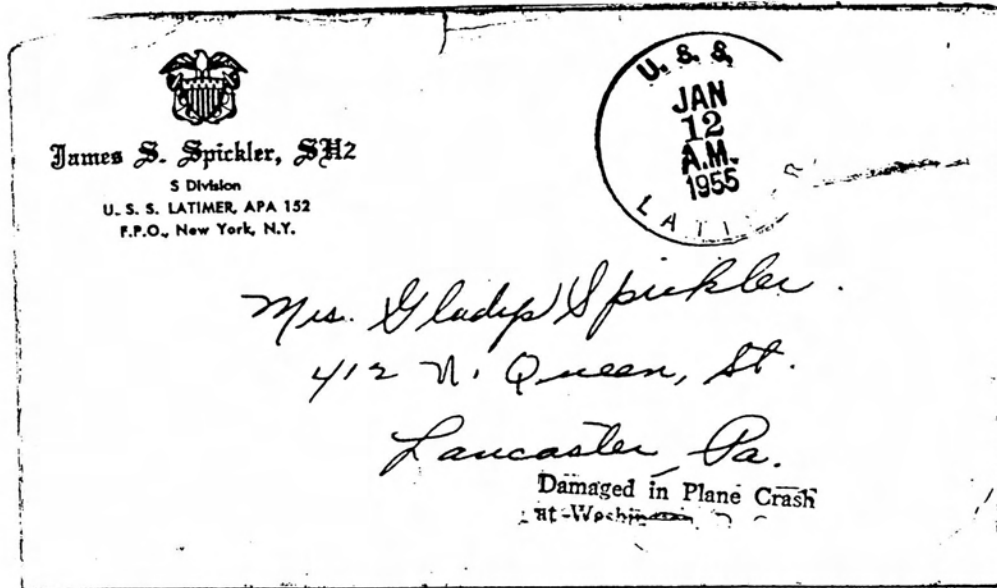 James S. Spickler, SH2
S Division
U. S. S. LATIMER, APA 152
F.P.O., New York, N.Y.
U. S. S.
JAN
12
A.M.
1955
Mrs. Gladys Spickler.
412 N. Queen, St.
Lancaster, Pa.
Damaged in Plane Crash
at